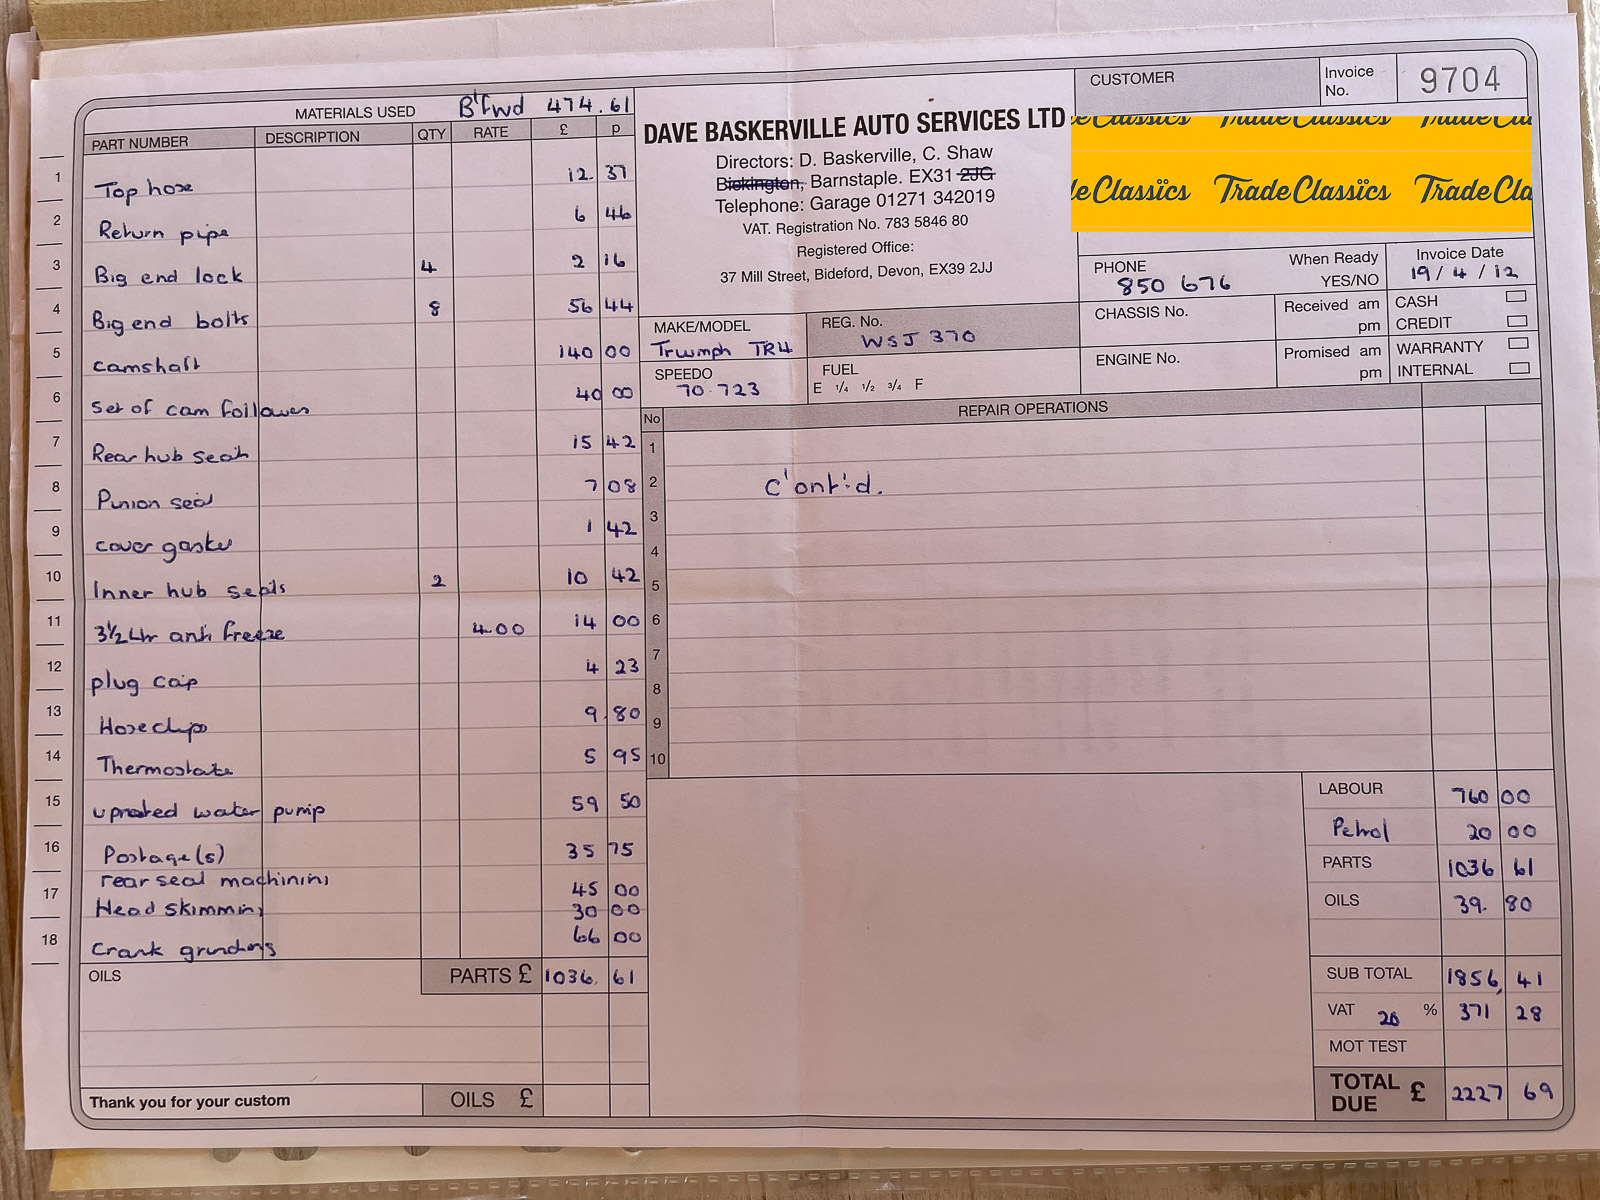 MATERIALS USED B'fwd 474.61
PART NUMBER DESCRIPTION QTY RATE £ p
1 Top hose 12. 37
2 Return pipe 6 46
3 Big end lock 4 2 16
4 Big end bolts 8 56 44
5 camshaft 140 00
6 Set of cam follower 40 00
7 Rear hub seals 15 42
8 Pinion seal 7 08
9 cover gasket 1 42
10 Inner hub seals 2 10 42
11 3½ Ltr anti freeze 4.00 14 00
12 plug cap 4 23
13 Hose clips 9.80
14 Thermostate 5 95
15 uprated water pump 59 50
16 Postage(s) 35 75
17 rear seal machining 45 00
Head skimming 30 00
18 Crank grinding 66 00
OILS PARTS £ 1036. 61
Thank you for your custom OILS £
DAVE BASKERVILLE AUTO SERVICES LTD
Directors: D. Baskerville, C. Shaw
Bickington, Barnstaple. EX31 2JG
Telephone: Garage 01271 342019
VAT. Registration No. 783 5846 80
Registered Office:
37 Mill Street, Bideford, Devon, EX39 2JJ
CUSTOMER
Invoice No. 9704
e Classics Trade Classics Trade Cla
le Classics Trade Classics Trade Cla
PHONE 850 676
When Ready YES/NO
Invoice Date 19/4/12
MAKE/MODEL Triumph TR4
REG. No. WSJ 370
CHASSIS No.
Received am
pm
CASH
CREDIT
SPEEDO 70.723
FUEL
E 1/4 1/2 3/4 F
ENGINE No.
Promised am
pm
WARRANTY
INTERNAL
No REPAIR OPERATIONS
1
2 C'ont'd.
3
4
5
6
7
8
9
10
LABOUR 760 00
Petrol 20 00
PARTS 1036 61
OILS 39. 80
SUB TOTAL 1856, 41
VAT 20 % 371 28
MOT TEST
TOTAL DUE £ 2227 69